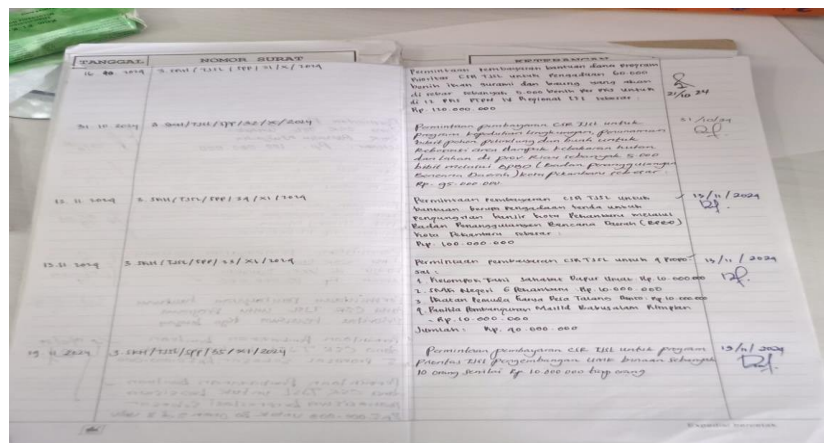 TANGGAL NOMOR SURAT KETERANGAN
16. 10 2024 3. SKH / TJSL / SPP / 31 / X / 2024 Permintaan Pembayaran bantuan dana program
Prioritas CSR TJSL untuk Pengadaan 60.000
benih Ikan Gurami dan baung yang akan
di tebar sebanyak 5.000 benih Per PKS untuk
di 12 PKS PTPN IV Regional III sebesar :
Rp. 120.000.000
21/10 24
31. 10 2024 3. SKH/TJSL/SPP/32/X/2024 Permintaan pembayaran CSR TJSL untuk
21/10/24
Program kepedulian lingkungan, penanaman
bibit pohon pelindung dan buah untuk
Reboisasi area dampak kebakaran hutan
dan lahan di prov Riau sebanyak 5.000
bibit melalui BPBD (Badan penanggulangan
Bencana Daerah) kota pekanbaru sebesar :
Rp. 95.000.000
13. 11 2024 3. SKH / TJSL / SPP / 34 / XI / 2024 Permintaan Pembayaran CSR TJSL untuk 13/11/2024
bantuan berupa Pengadaan tenda untuk
Pengungsian banjir kota Pekanbaru melalui
Badan Penanggulangan Bencana Daerah (BPBD)
kota Pekanbaru sebesar :
Rp. 100.000.000
13. 11 2024 3. SKH / TJSL / SPP / 33 / XI / 2024 Permintaan pembayaran CSR TJSL untuk 4 Propo 13/11/2024
sal :
1. Kelompok Tani Sahabat Dapur Umat Rp. 10.000.000
2. SMK Negeri 6 Pekanbaru Rp. 10.000.000
3. Ikatan Pemuda Karya Desa Talang Danto : Rp 10.000.000
4. Panitia Pembangunan Masjid Babusalam
- Rp. 10.000.000
Jumlah : Rp. 40.000.000
19 11 2024 3. SKH/TJSL/SPP/35/XI/2024 Permintaan pembayaran CSR TJSL untuk program 19/11/2024
Prioritas TJSL pengembangan UMK binaan sebanyak
10 orang senilai Rp 10.200.000 tiap orang